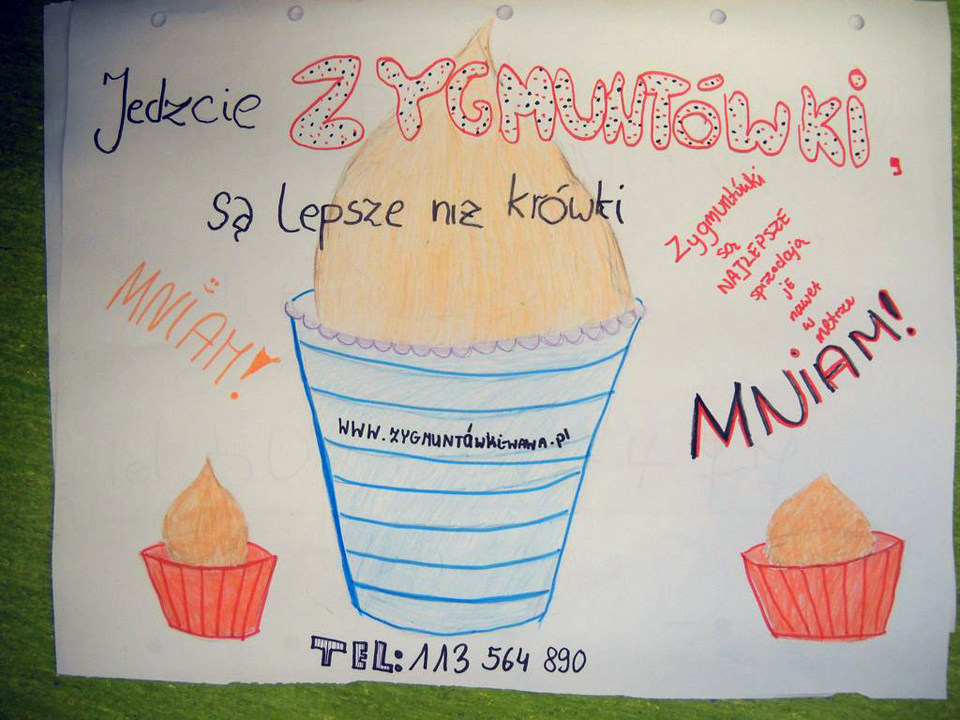 Jedzcie ZYGMUNTÓWKI,
są lepsze niż krówki
Zygmuntówki
są
NAJLEPSZE
sprzedają
je
nawet
w
metrze
MNIAM!
MNIAM!
WWW.ZYGMUNTÓWKIWAWA.pl
TEL: 113 564 890